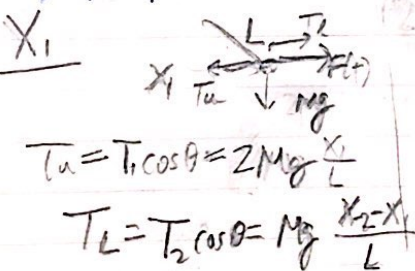 X₁
L T₂
X₁ Tu F(t)
Mg
Tu = T₁cosθ = 2Mg X₁/L
T_L = T₂cosθ = Mg (X₂-X₁)/L